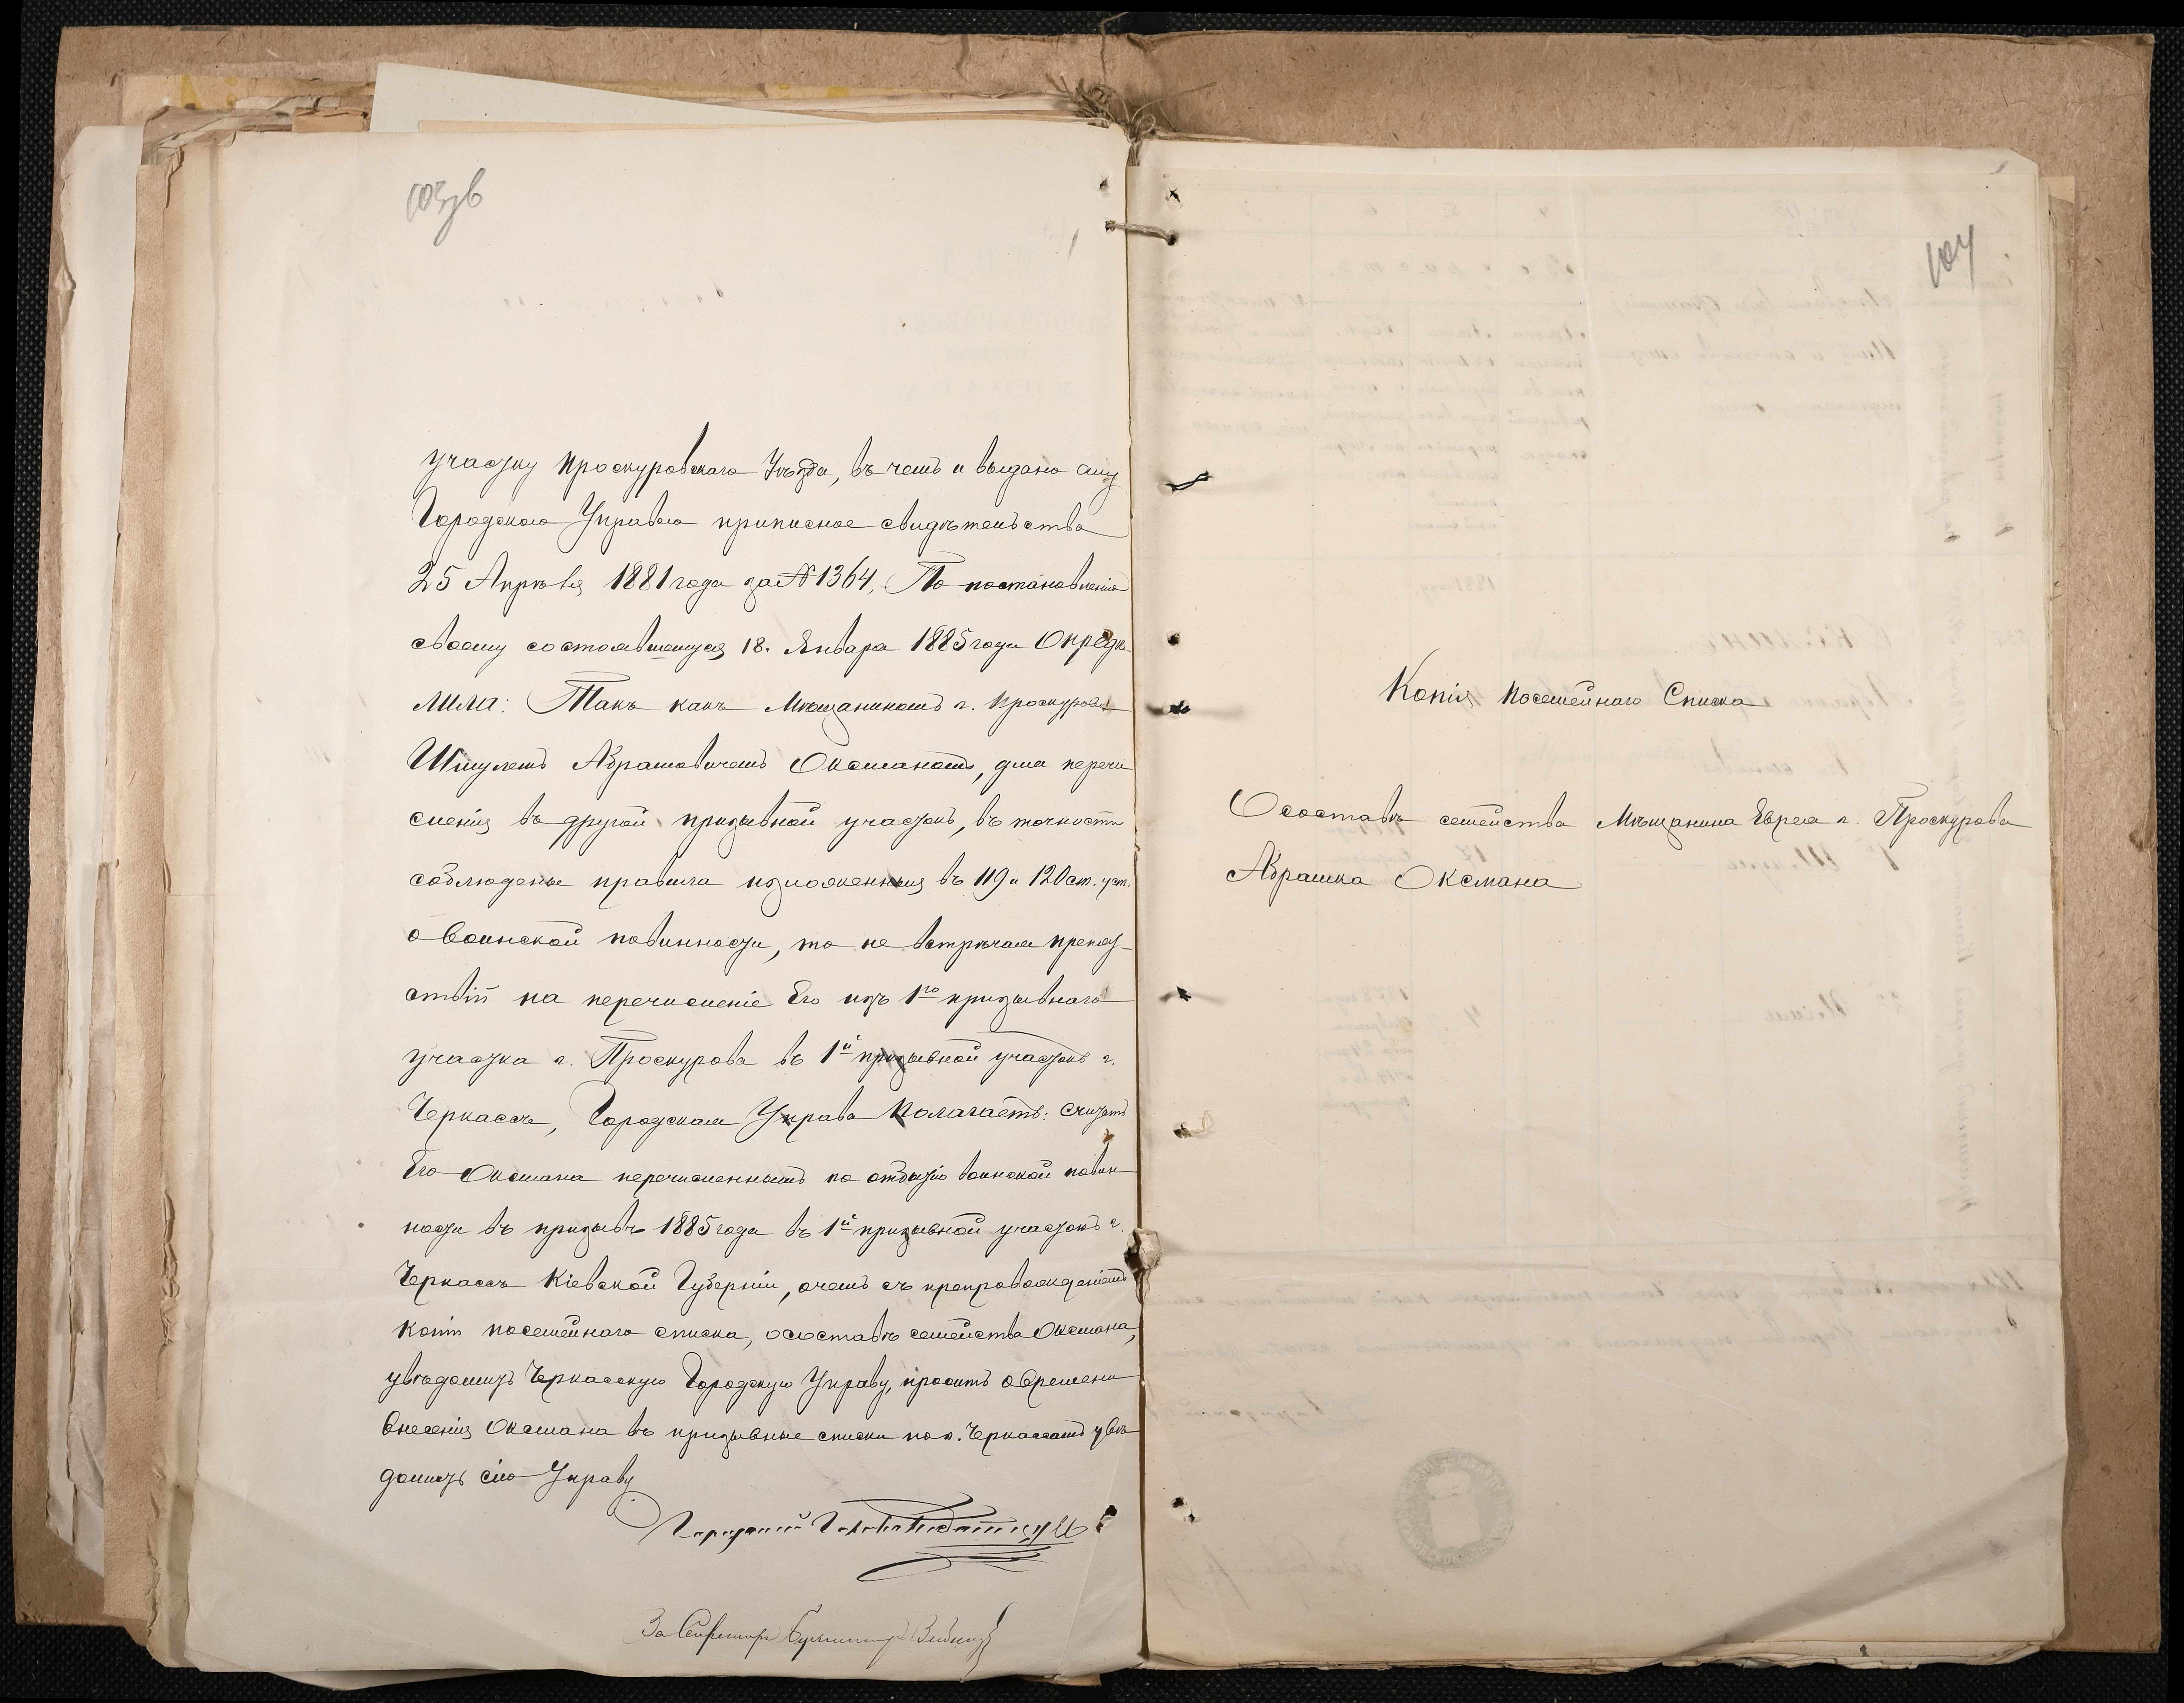 103в
участку Проскуровскаго Уѣзда, въ чемъ и выдано ему
Городскою Управою приписное свидѣтельство
25 Апрѣля 1881 года за № 1364, По постановленію
своему состоявшемуся 18. Января 1885 года Опредѣ-
лила: Такъ какъ Мѣщаниномъ г. Проскурова
Шмулемъ Абрамовичемъ Оксманомъ, для перечи
сленія въ другой призывной участокъ, въ точности
соблюдены правила изложенныя въ 119 и 120 ст. уст.
о Воинской повинности, то не встрѣчая препят-
ствій на перечисленіе Его изъ 1го призывнаго
участка г. Проскурова въ 1й призывной участокъ г.
Черкассъ, Городская Управа Полагаетъ: Считать
Его Оксмана перечисленнымъ по отбытію воинской повин
ности въ призывъ 1885 года въ 1й призывной участокъ г.
Черкассъ Кіевской Губерніи, о чемъ съ препровожденіемъ
копіи посемейнаго списка, о составѣ семейства Оксмана,
увѣдомить Черкасскую Городскую Управу, просить о времени
внесенія Оксмана въ призывные списки по г. Черкассамъ увѣ
домить сію Управу
Городской Голова
За Секретаря Бухгалтеръ
104
Копія Посемейнаго Списка
О составѣ семейства Мѣщанина Еврея г. Проскурова
Абрашка Оксмана